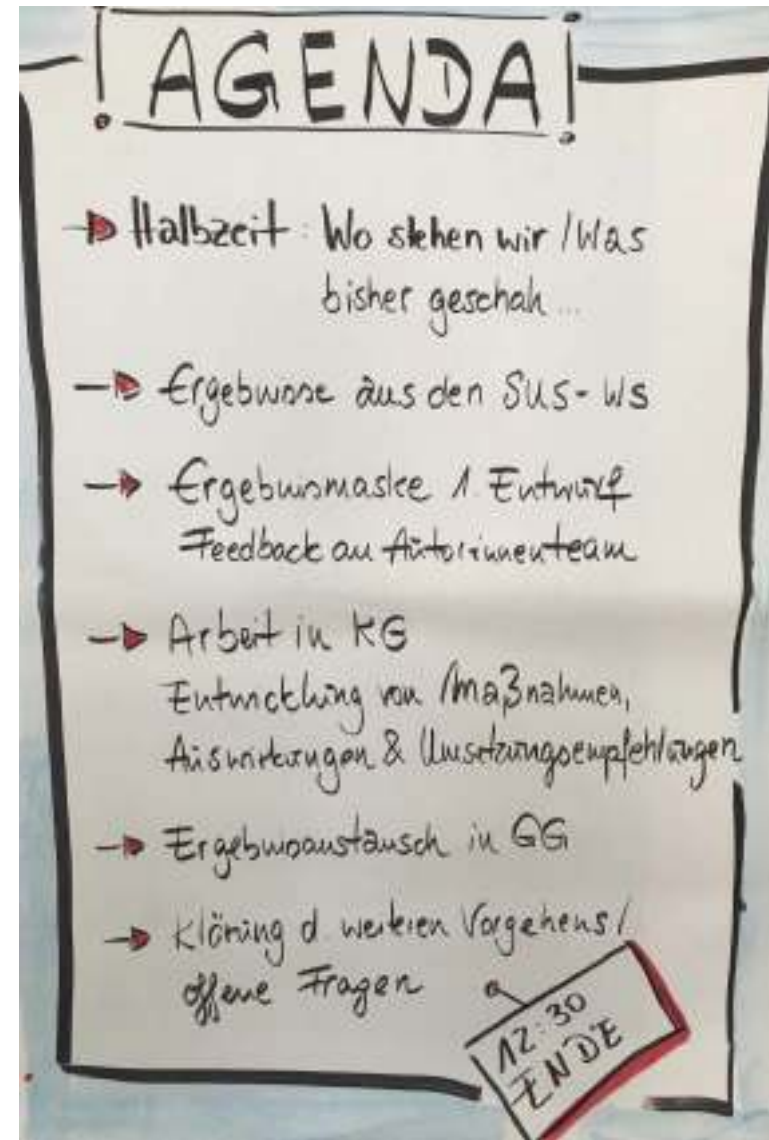 AGENDA
Halbzeit: Wo stehen wir / Was
bisher geschah ...
Ergebnisse aus den SUS-WS
Ergebnismaske 1. Entwurf
Feedback an Autorinnenteam
Arbeit in KG
Entwicklung von Maßnahmen,
Auswirkungen & Umsetzungsempfehlungen
Ergebnisaustausch in GG
Klärung d. weiteren Vorgehens /
offene Fragen
12:30
ENDE